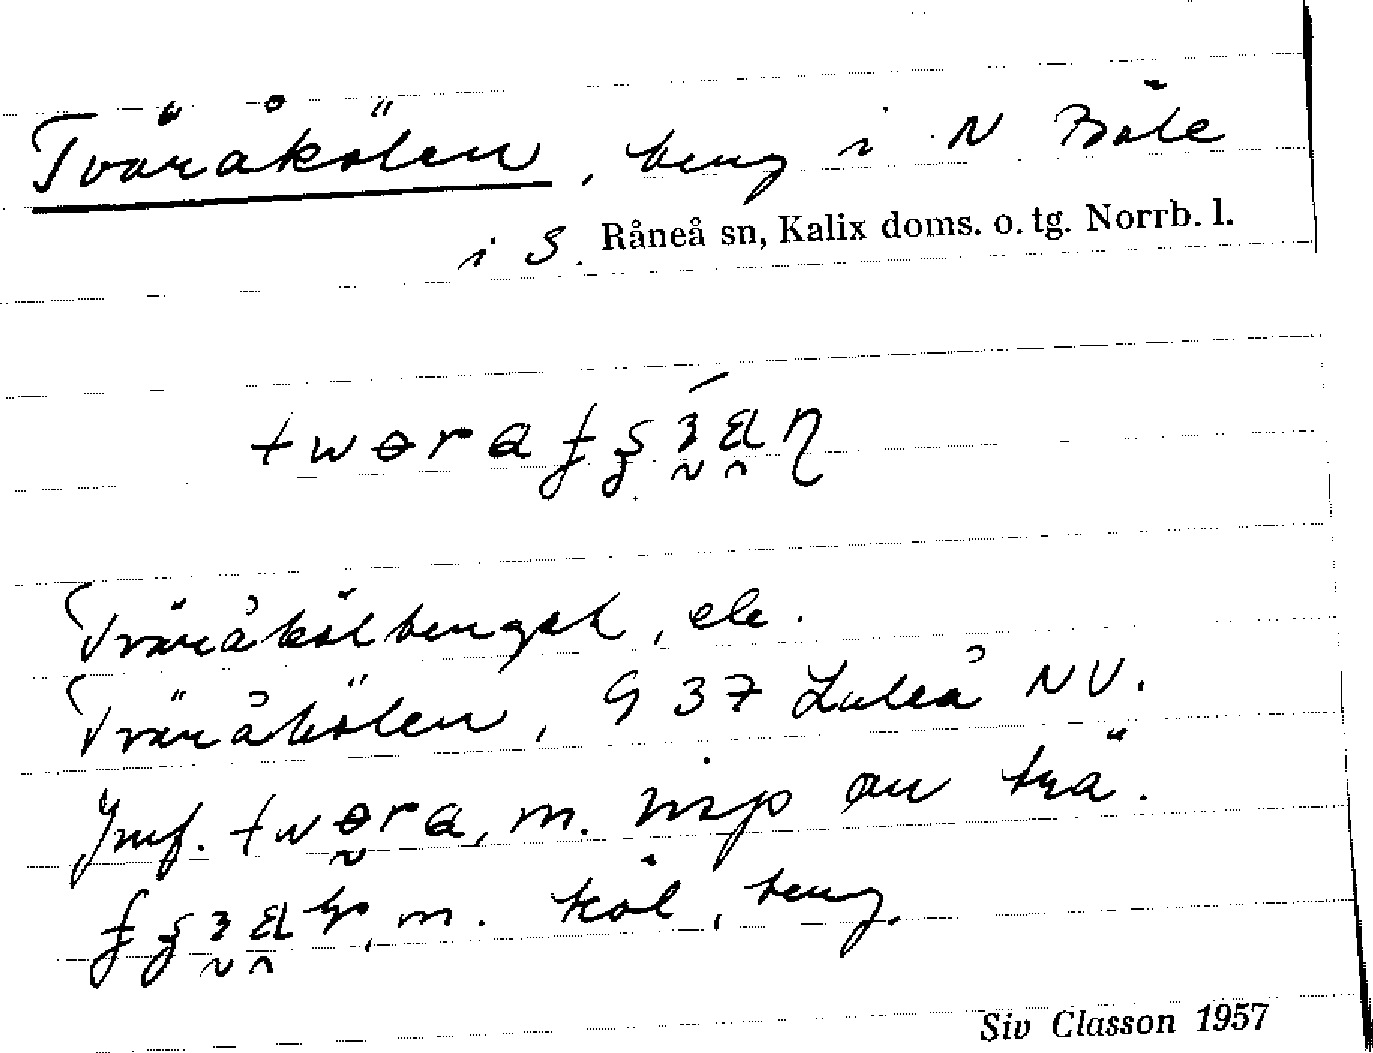 Tväråkölen, berg i N Böle
i S. Råneå sn, Kalix doms. o. tg. Norrb. l.
Tväråkölberget, ek.
Tväråkölen, 9 37 Luleå NV.
Jmf. twɵra, m. av trä.
m. köl, berg.
Siv Classon 1957